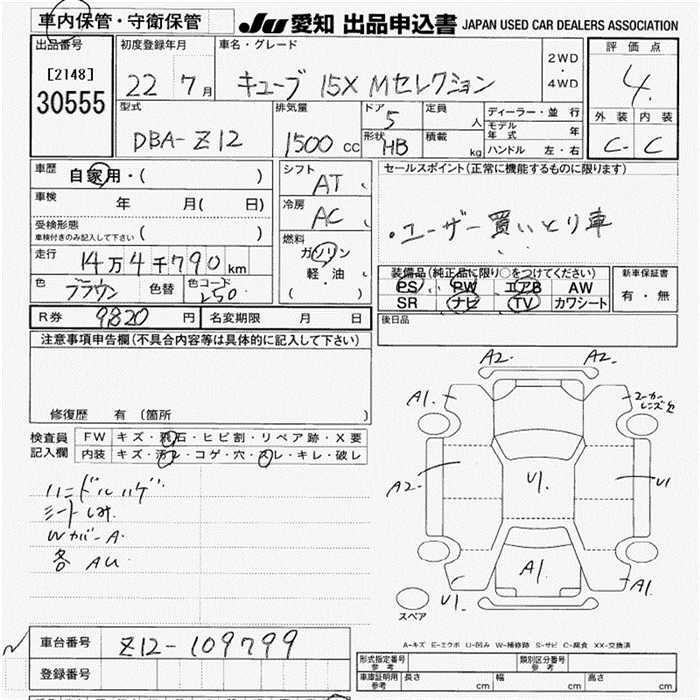 車内保管・守衛保管
JU 愛知 出品申込書 JAPAN USED CAR DEALERS ASSOCIATION
出品番号
[2148]
30555
初度登録年月
22 7月
車名・グレード
キューブ 15X Mセレクション
2WD
・
4WD
評価点
4
外装 内装
C- C
型式
DBA-Z12
排気量
1500 cc
ドア
5
形状
HB
定員
人
積載
kg
ディーラー・並行
モデル年式 年
ハンドル 左・右
車歴
自家用・( )
車検 年 月( 日)
受検形態
車検付きのみ記入して下さい ( )
走行
14万4千790km
色
ブラウン
色替
色コード
シフト
AT
冷房
AC
燃料
ガソリン
軽・油
( )
セールスポイント(正常に機能するものに限ります)
・ユーザー買いとり車
装備品(純正品に限り○をつけてください)
PS PW エアB AW
SR ナビ TV カワシート
新車保証書
有・無
後日品
R券 9820円
名変期限 月 日
注意事項申告欄(不具合内容等は具体的に記入して下さい)
修復歴 有(箇所 )
検査員
記入欄
FW キズ・飛石・ヒビ割・リペア跡・X要
内装 キズ・汚レ・コゲ・穴・スレ・キレ・破レ
ハンドルハゲ
シートしみ
WカバーA
各 AU
A2 A2
A1
コーカーレンズ欠
A2
U1
U1
A1
U1
A1
スペア
A-キズ E-エクボ U-凹み W-補修跡 S-サビ C-腐食 XX-交換済
車台番号 Z12-109799
登録番号
形式指定番号
参考
類別区分番号
参考
車庫証明用
参考
長さ cm 幅 cm 高さ cm